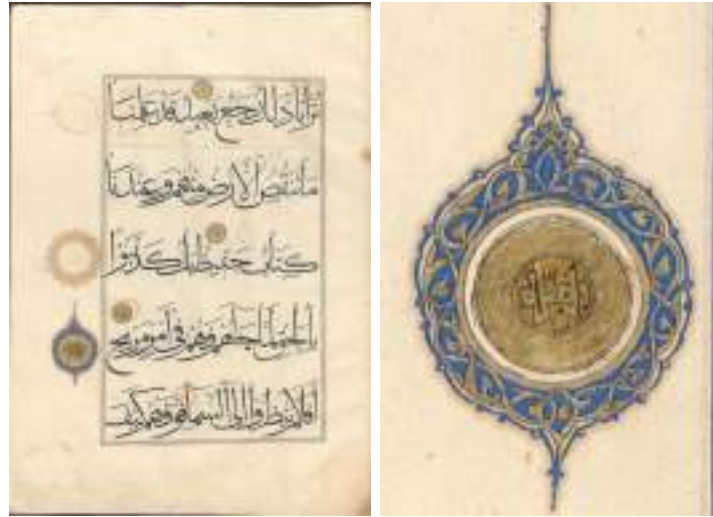 تُرَابًا ذَلِكَ رَجْعٌ بَعِيدٌ قَدْ عَلِمْنَا
مَا تَنْقُصُ الْأَرْضُ مِنْهُمْ وَعِنْدَنَا
كِتَابٌ حَفِيظٌ بَلْ كَذَّبُوا
بِالْحَقِّ لَمَّا جَاءَهُمْ فَهُمْ فِي أَمْرٍ مَرِيجٍ
أَفَلَمْ يَنْظُرُوا إِلَى السَّمَاءِ فَوْقَهُمْ كَيْفَ